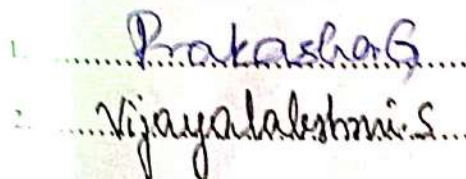 1. Prakasha G
2. Vijayalakshmi.S